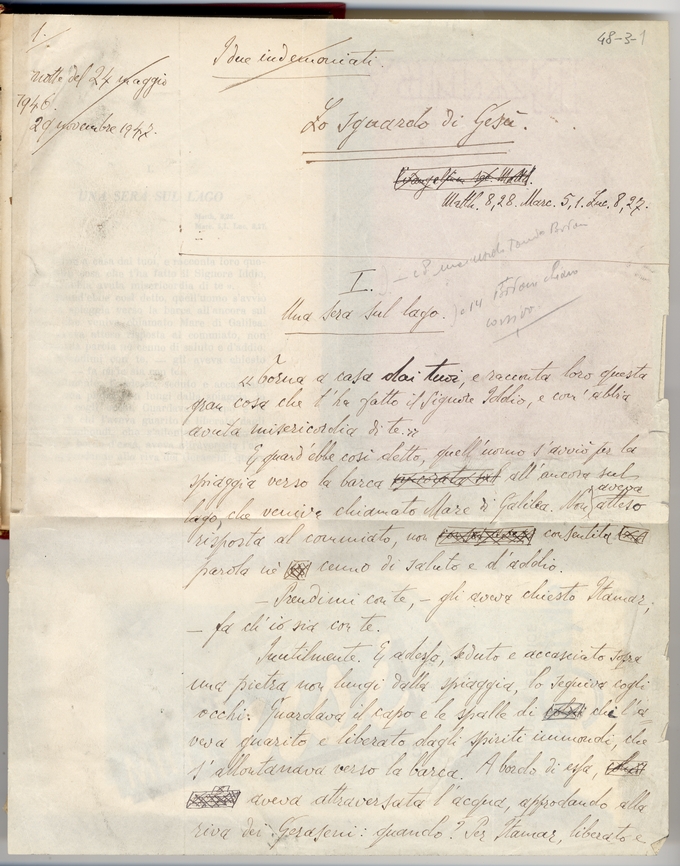 1.
48-3-1
I due indemoniati.
notte del 24 maggio
1946.
29 novembre 1947.
Lo sguardo di Gesù.
Matth. 8, 28. Marc. 5, 1. Luc. 8, 27.
I.
Una sera sul lago.
e 14
corsivo
UNA SERA SUL LAGO
« Torna a casa dai tuoi, e racconta loro questa
gran cosa che t'ha fatto il Signore Iddio, e com'abbia
avuta misericordia di te. »
E quand'ebbe così detto, quell'uomo s'avviò per la
spiaggia verso la barca all'ancora sul
aveva
lago, che veniva chiamato Mare di Galilea. Non atteso
risposta al commiato, non consentita
parola nè cenno di saluto e d'addio.
– Prendimi con te, – gli aveva chiesto Itamar;
– fa ch'io sia con te.
Inutilmente. E adesso, seduto e accasciato sopra
una pietra non lungi dalla spiaggia, lo seguiva cogli
occhi. Guardava il capo e le spalle di chi l'a
veva guarito e liberato dagli spiriti immondi, che
s'allontanava verso la barca. A bordo di essa,
aveva attraversata l'acqua, approdando alla
riva dei Geraseni: quando? Per Itamar, liberato e